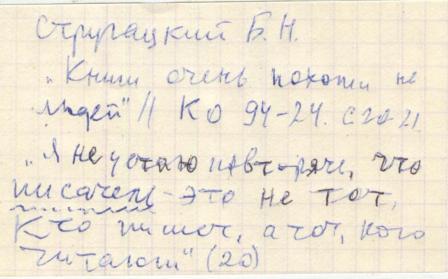 Стругацкий Б.Н.
"Книги очень похожи на
людей" // КО 94-24. С 20-21
"Я не устаю повторять, что
писатель - это не тот,
кто пишет, а тот, кого
читают" (20)